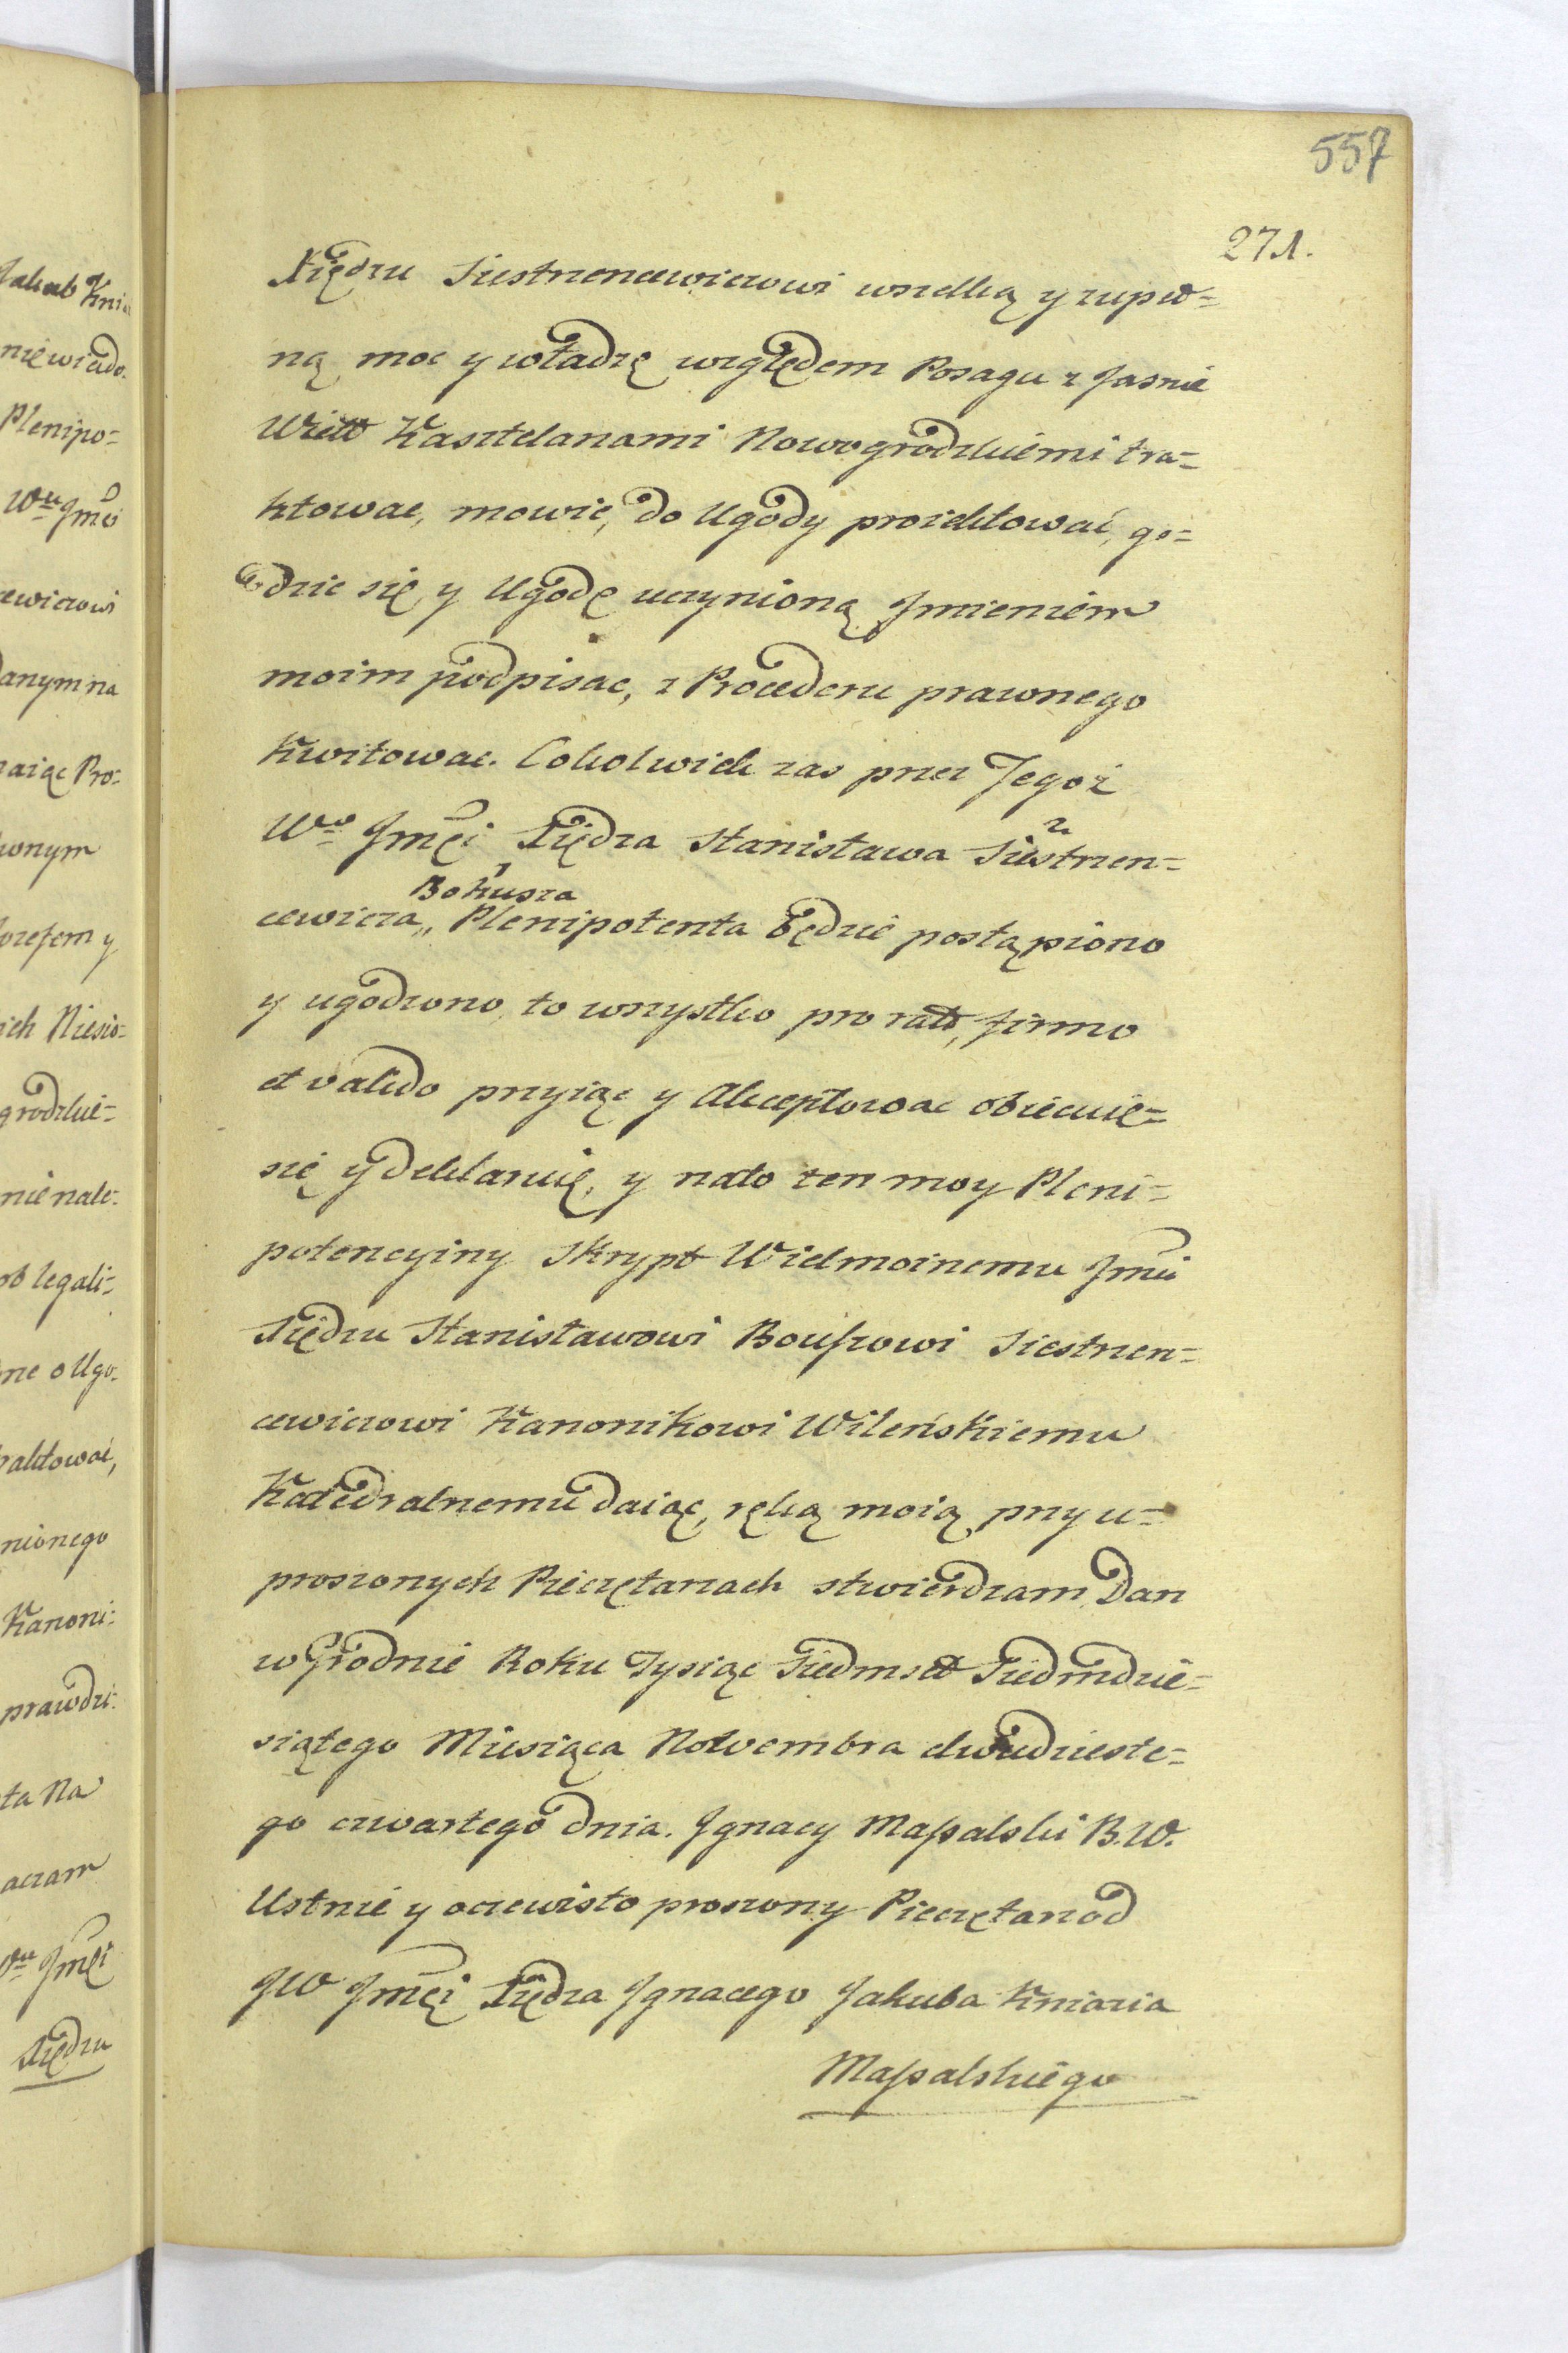 557
271.
Xiędzu Siestrzencewiczowi wszelką y zupeł=
ną moc y władzę względem Posagu z Jasnie
Wielo Kasztelanami Nowogrodzkiemi tra=
ktowac, mowić, do Ugody proiektować, go=
dzic się y Ugodę uczynioną Jmieniem
moim podpisac, z Procederu prawnego
Kwitowac. Cokolwiek zas przez Jegoż
Wo Jmći Xiędza Stanisława Siestrzen=
Bohusza
cewicza,, Plenipotenta będzie postąpiono
y ugodzono, to wszystko pro rato, firmo
et valido przyiąc y Akceptowac obiecuię=
się y deklaruię, y nato ten moy Pleni=
potencyiny Skrypt Wielmożnemu Jmći
Xiędzu Stanisławowi Bouszowi Siestrzen=
cewiczowi Kanonikowi Wileńskiemu
Katedralnemu daiąc, ręką moią przy u=
proszonych Pieczętarzach stwierdzam Dan
w Grodnie Roku Tysiąc Siedmset Siedmdzie=
siątego Miesiąca Nowembra dwudzieste=
go czwartego dnia. Jgnacy Massalski B. W.
Ustnie y oczewisto proszony Pieczętarz od
JW Jmći Xiędza Jgnacego Jakuba Kniazia
Massalskiego
Jakub Knia
nię wiado=
Plenipo=
Wu Jmći
cewiczowi
danym na
Pro=
wnym
Jozefem y
ich Niesio=
grodzkie=
nie nale=
legali=
o Ugo=
nionego
Kanoni=
prawdzi=
ta Na
aczam
Wu Jmći
Xiędzu